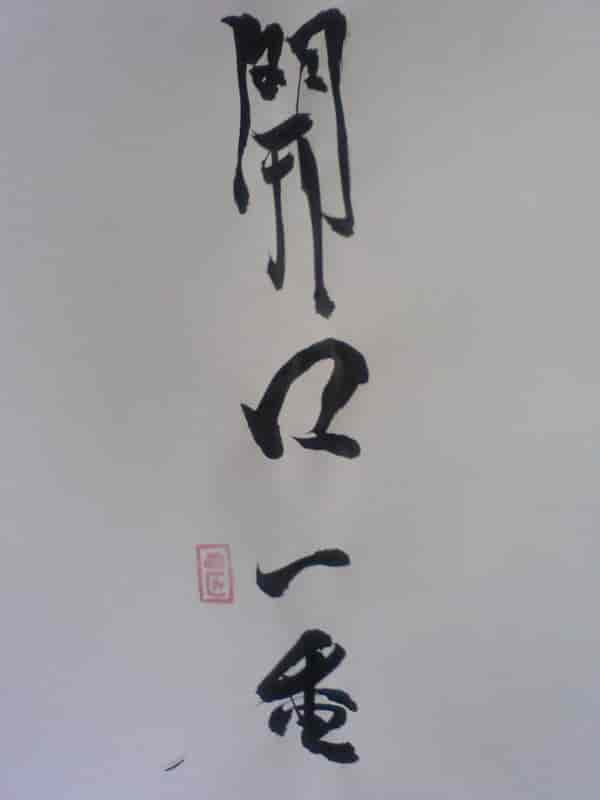 開口一番